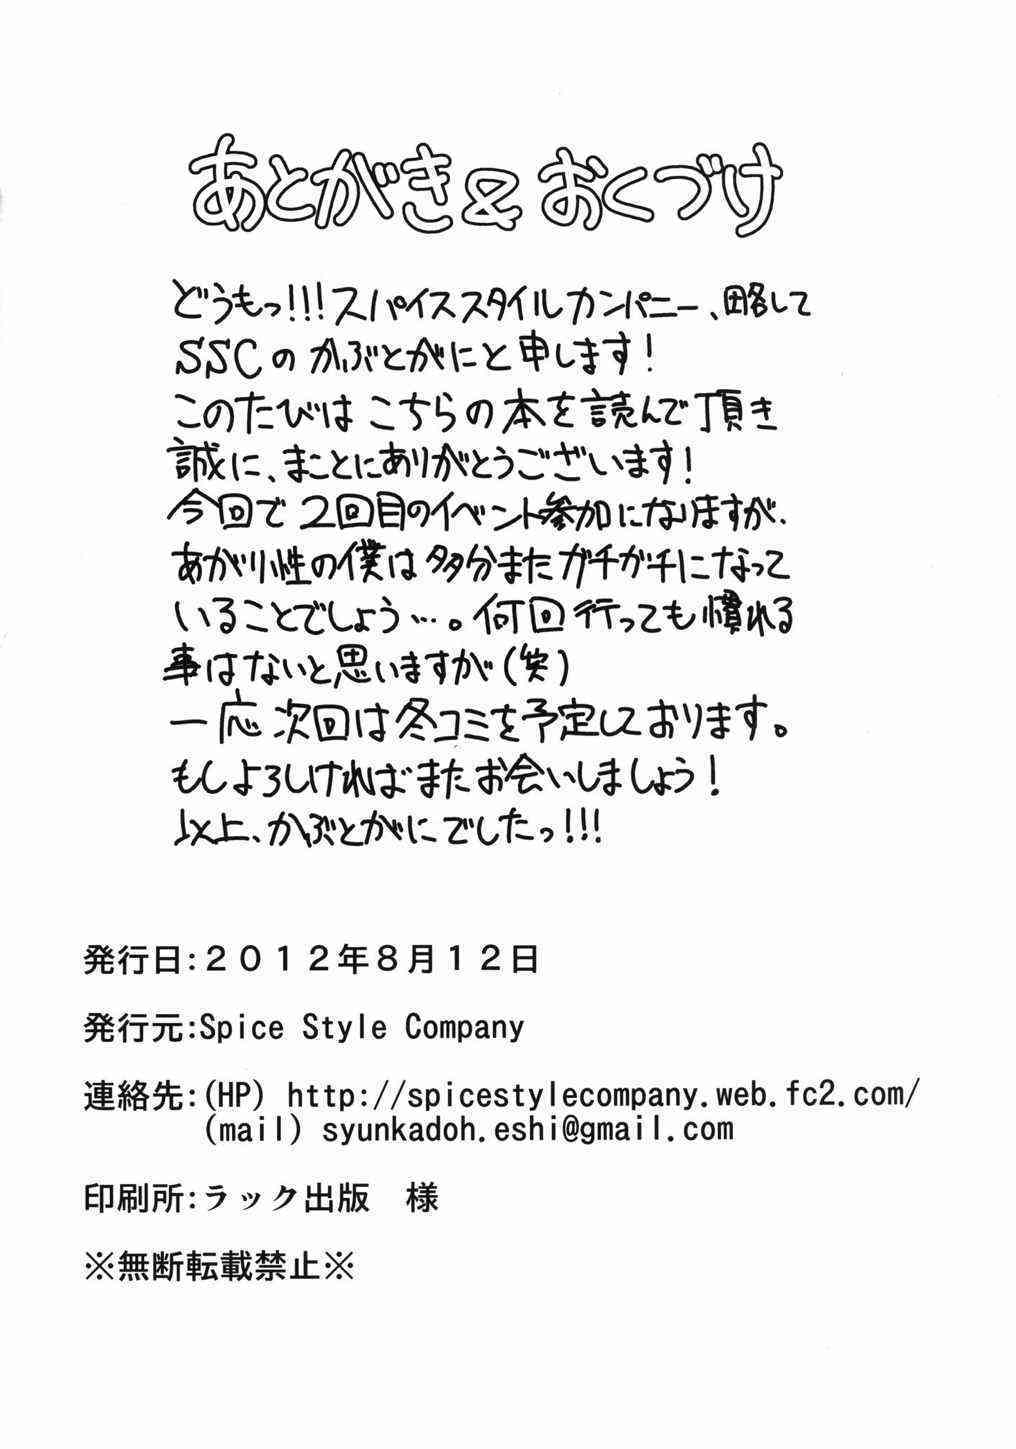 あとがき&おくづけ
どうもっ!!!スパイススタイルカンパニー、略して
SSCのかぶとがにと申します!
このたびはこちらの本を読んで頂き
誠に、まことにありがとうございます!
今回で2回目のイベント参加になりますが、
あがり性の僕は多分またガチガチになって
いることでしょう…。何回行っても慣れる
事はないと思いますが(笑)
一応次回は冬コミを予定しております。
もしよろしければまたお会いしましょう!
以上、かぶとがにでしたっ!!!
発行日:2012年8月12日
発行元:Spice Style Company
連絡先:(HP) http://spicestylecompany.web.fc2.com/
(mail) syunkadoh.eshi@gmail.com
印刷所:ラック出版　様
※無断転載禁止※